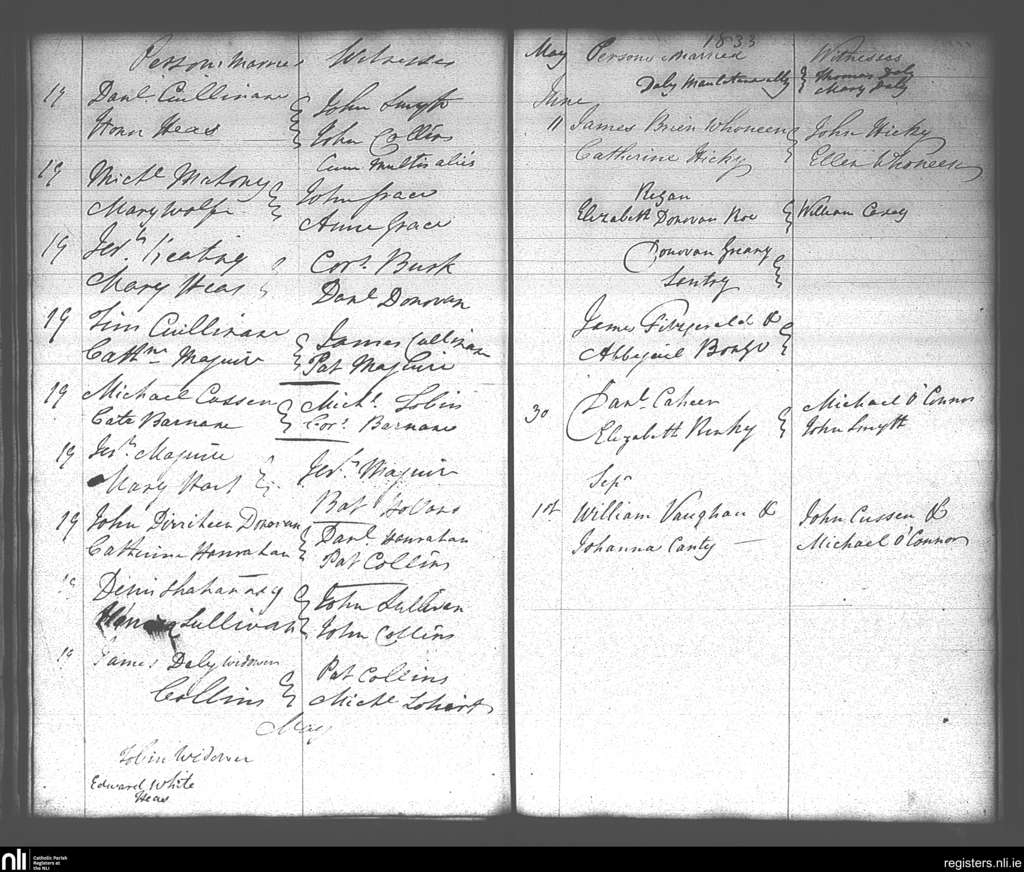 Persons Married Witnesses
19 Danl. Cuillinane John Smyth
Honr Heas John Collins
Cum multis aliis
19 Michl. Mahony John Grace
Mary Wolfe Anne Grace
19 Jerh. Keating Corns. Bursk
Mary Heas Danl. Donovan
19 Tim Cuillinane James Cullinane
Cathne Maguire Pat Maguire
19 Michael Cussen Michl. Tobin
Cate Barnane Cors. Barnane
19 Jerh. Maguire Jerh. Maguire
Mary Hart Bat
19 John Dirriheen Donovan Danl. Hanrahan
Catherine Hanrahan Pat Collins
19 Denis Shahannasy John Sullivan
Sullivan John Collins
19 James Daly widower Pat Collins
Collins Michl.
May
Tobin Widower
Edward White
Heas
1833
May Persons Married Witnesses
Daly Thomas Daly
Mary Daly
June
11 James Brien Whoneen John Hicky
Catherine Hicky Ellen Whoneen
Regan
Elizabeth Donovan Roe William Casey
Donovan Greany
Sentry
James Fitzgerald &
Abbegail
30 Danl. Caheer Michael O'Connor
Elizabeth John Smyth
Sepr
1st William Vaughan & John Cussen &
Johanna Canty Michael O'Connor
nli Catholic Parish
Registers at
the NLI
registers.nli.ie